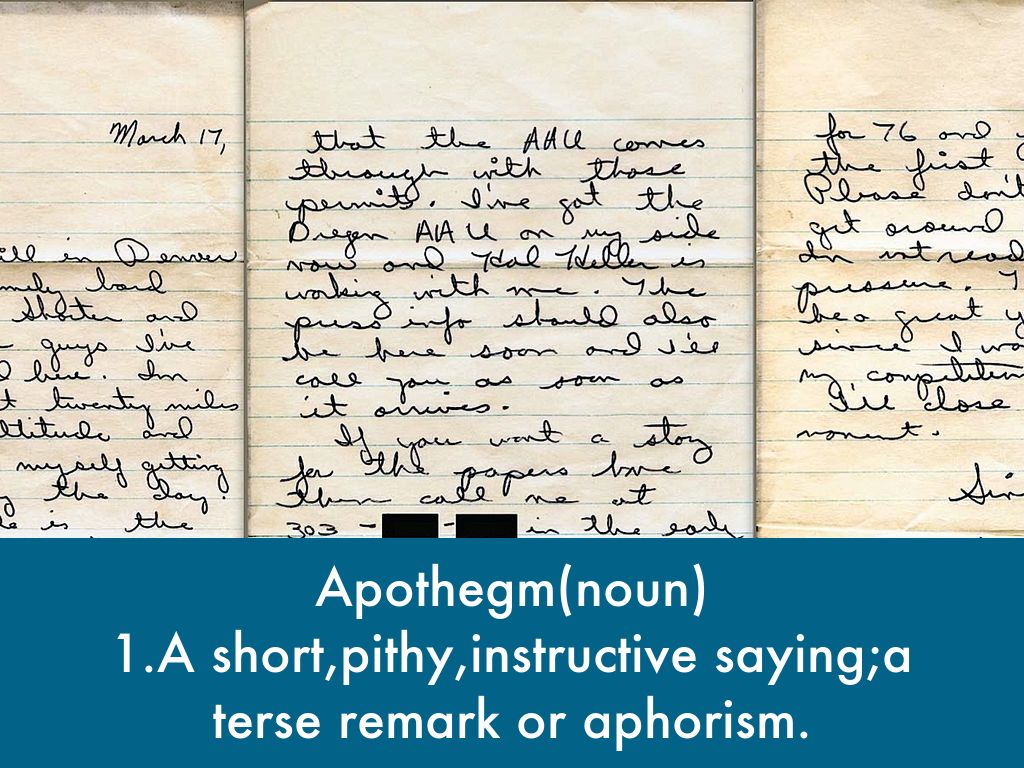 March 17,
ill in Denver
mely hard
Shorter and
guys I've
here. I'm
t twenty miles
ltitude and
myself getting
the day.
is the
that the AAU comes
through with those
permits. I've got the
Oregon AAU on my side
now and Hal Heller is
working with me. The
press info should also
be here soon and I'll
call you as soon as
it arrives.
If you want a story
for the papers have
them call me at
303 - - in the early
for 76 and
the first
Please don't
get around
I'm not read
pressure. T
be a great y
since I wa
my competition
I'll close
moment.
Sin
Apothegm(noun)
1.A short,pithy,instructive saying;a
terse remark or aphorism.